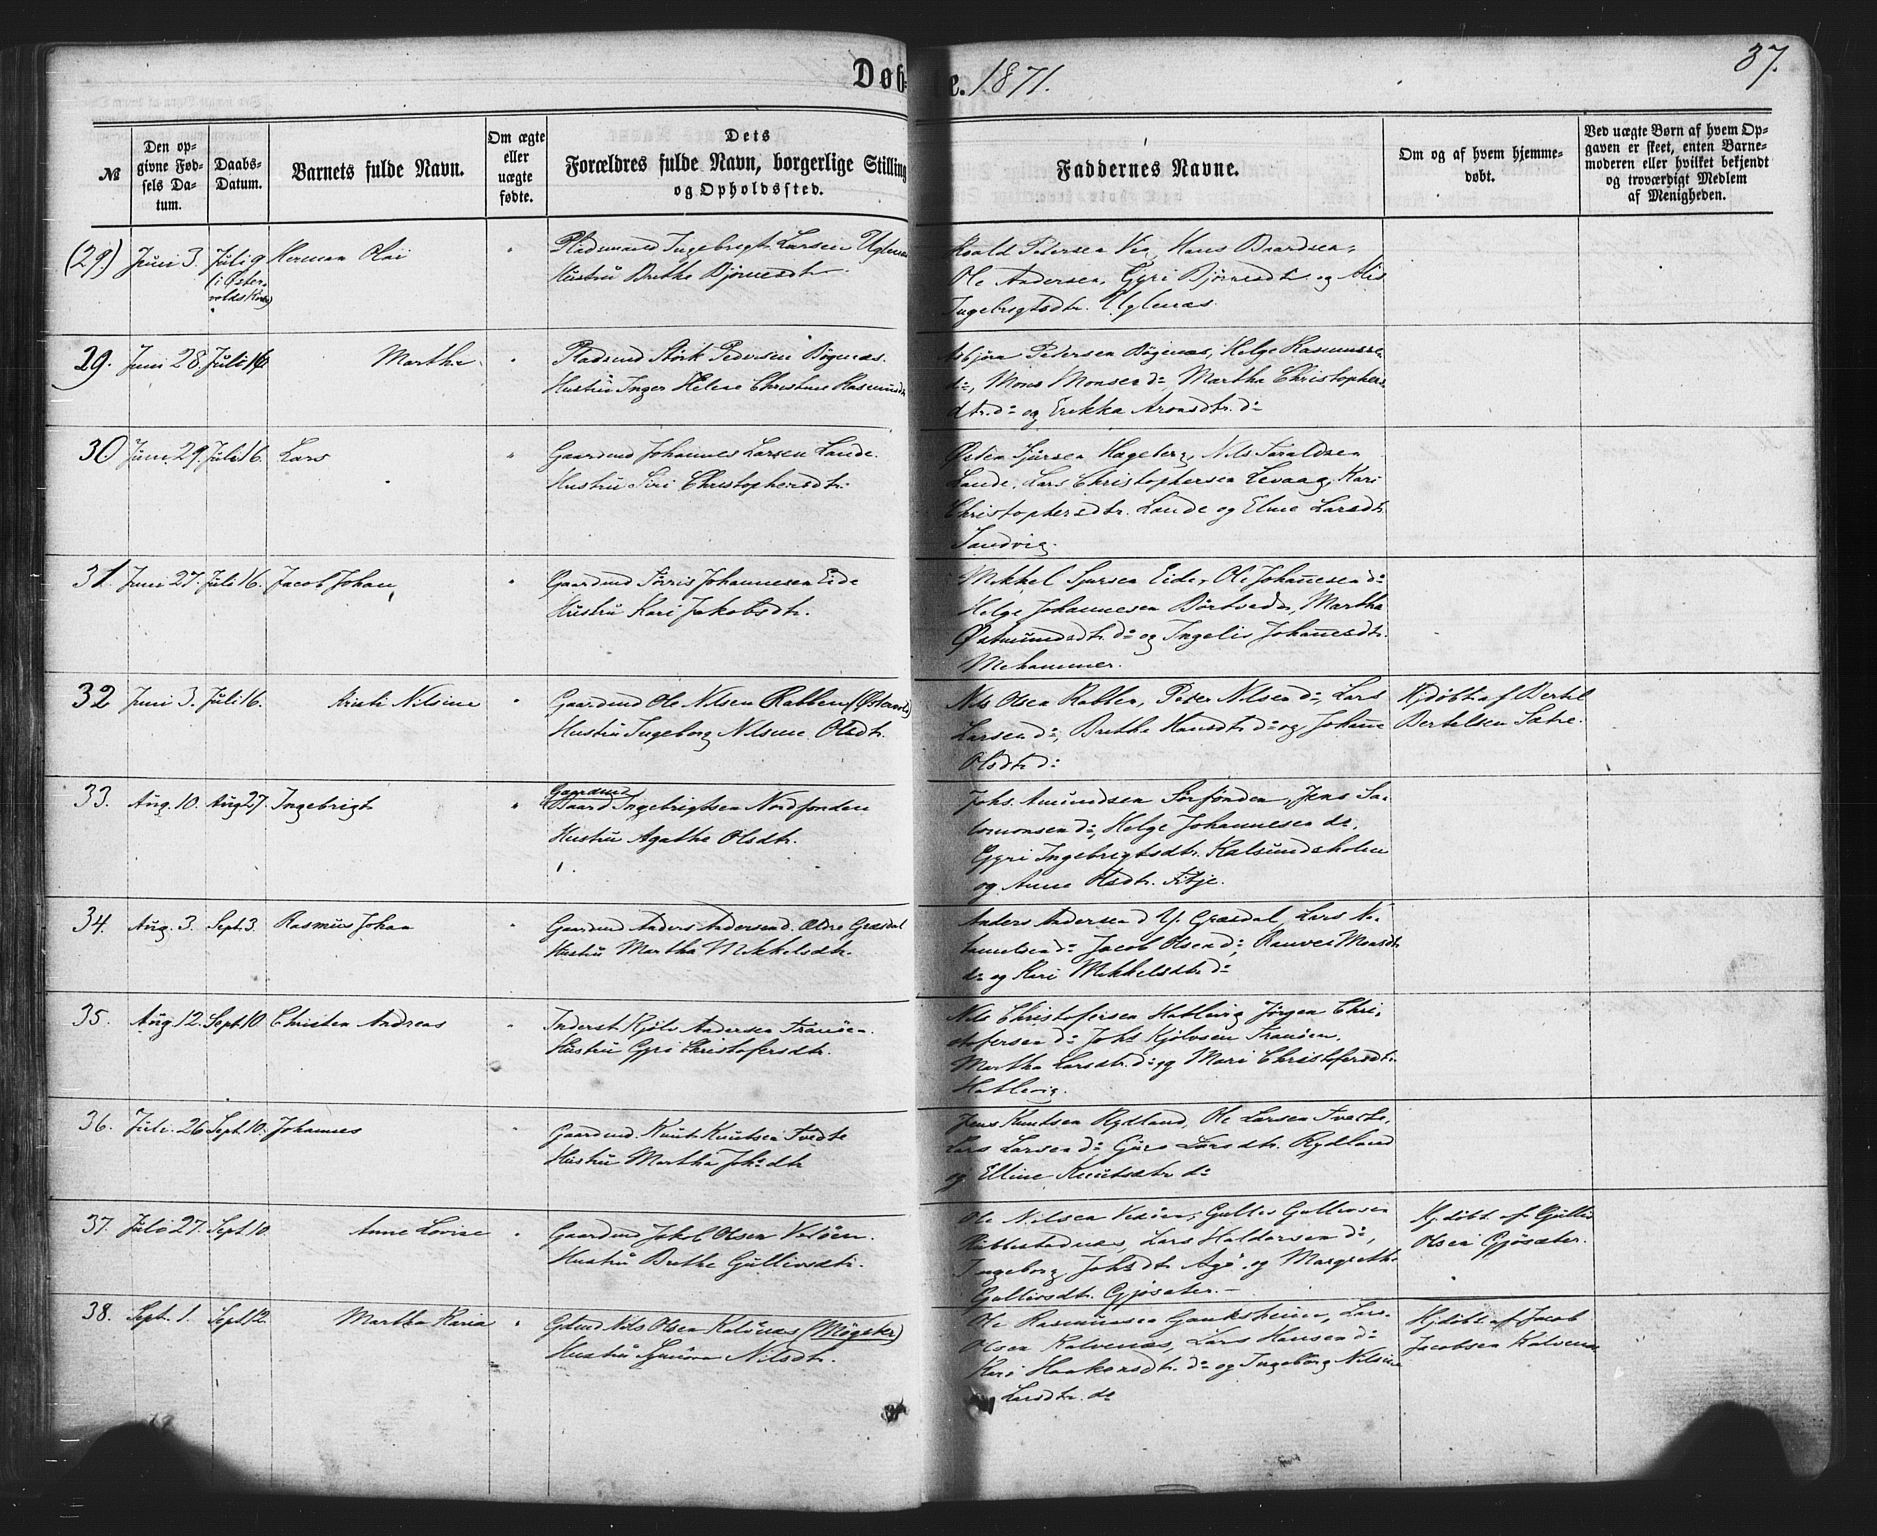 Døbte. 1871.
37.
№
Den opgivne Fødsels Datum.
Daabs-Datum.
Barnets fulde Navn.
Om ægte eller uægte fødte.
Dets Forældres fulde Navn, borgerlige Stilling og Opholdssted.
Faddernes Navne.
Om og af hvem hjemmedøbt.
Ved uægte Børn af hvem Opgaven er skeet, enten Barnemoderen eller hvilket bekjendt og troværdigt Medlem af Menigheden.
(29) Juni 3. Juli 9 (i Østervolds Kirke) Herman Kai
Pladsmand Ingebrigt Larsen Uglenæs
Hustru Brithe Bjørnesdtr.
Roald Petersen Vig, Hans Baardsen,
Ole Andersen, Gyri Bjørnesdtr og Alis
Ingebrigtsdtr. Uglenæs.
29. Juni 28. Juli 16 Martha
Pladsmd Størk Pedersen Bøgenæs.
Hustru Inger Helene Christine Rasmusdtr
Asbjørn Petersen Bøgenæs, Helge Rasmussen
do, Mons Monsen do, Martha Christophers-
dtr. do og Erikka Aronsdtr. do
30 Juni 29. Juli 16. Lars
Gaardmd Johannes Larsen Lande.
Hustru Siri Christophersdtr.
Østen Sjursen Hageberg, Nils Taraldsen
Lande, Lars Christophersen Levaag, Kari
Christophersdtr. Lande og Eline Larsdtr.
Sandvig.
31. Juni 27. Juli 16. Jacob Johan
Gaardmd Tørris Johannesen Eide
Hustru Kari Jakobsdtr.
Mikkel Sjursen Eide, Ole Johannesen do
Helge Johannesen Børtved, Martha
Østmundsdtr. do og Ingelis Johannesdtr.
Mehammer.
32 Juni 3. Juli 16. Kristi Nilsine
Gaardmd Ole Nilsen Rabben (Østervold)
Hustru Ingeborg Nilsine Olsdtr.
Nils Olsen Rabben, Peter Nilsen do, Lars
Larsen do, Brithe Hansdtr. do og Johanne
Olsdtr. do
Hjdøbt af Bertel
Bertelsen Sætre.
33. Aug. 10. Aug 27. Ingebrigt
Gaardmd
Baard Ingebrigtsen Nordfonden
Hustru Agathe Olsdtr.
Johs. Amundsen Sørfonden, Jens Sa-
lomonsen do, Helge Johannesen do,
Gyri Ingebrigtsdtr. Kalsundsholen
og Anne Olsdtr. Fitje.
34. Aug. 3. Sept. 3. Rasmus Johan
Gaardmd Anders Andersen d. Ældre Græsdal
Hustru Martha Mikkelsdtr.
Anders Andersen d. Y. Græsdal, Lars Na-
tanielsen do Jacob Olsen do, Ranvei Monsdtr
do og Kari Mikkelsdtr. do
35. Aug 12. Sept 10. Christen Andreas
Inderst Kjølv Andersen Tranøen.
Hustru Gyri Christofersdtr.
Nils Christofersen Hatlevig Jørgen Chri-
stofersen do Johs Kjølvsen Tranøen,
Martha Larsdtr. do og Mari Christofersdtr.
Hatlevig.
36. Juli. 26 Sept. 10. Johannes
Gaardmd. Knut Knutsen Tvedte
Hustru Martha Johsdtr
Jens Knutsen Rydland, Ole Larsen Tvedte,
Lars Larsen do Guro Larsdtr. Rydland
og Elline Knutsdtr do
37. Juli 27. Sept. 10. Anne Lovise
Gaardmd Jakob Olsen Vedøen.
Hustru Brithe Gulleivsdtr.
Ole Nilsen Vedøen, Gulleiv Gulleivsen
Rubbestadnæs, Lars Haldorsen do,
Ingeborg Johsdtr Agø og Margrethe
Gulleivsdtr. Gjøsæter.
Hjdøbt af Gulleiv
Olsen Gjøsæter.
38. Sept. 1. Sept 12. Martha Karia
Gdmd Nils Olsen Kalvenæs (Møgster)
Hustru Synnøva Nilsdtr.
Ole Rasmussen Gauksheim, Lars
Olsen Kalvenæs, Lars Hansen do
Kari Haakonsdtr. do og Ingeborg Nilsine
Larsdtr. do
Hjdøbt af Jacob
Jacobsen Kalvenæs